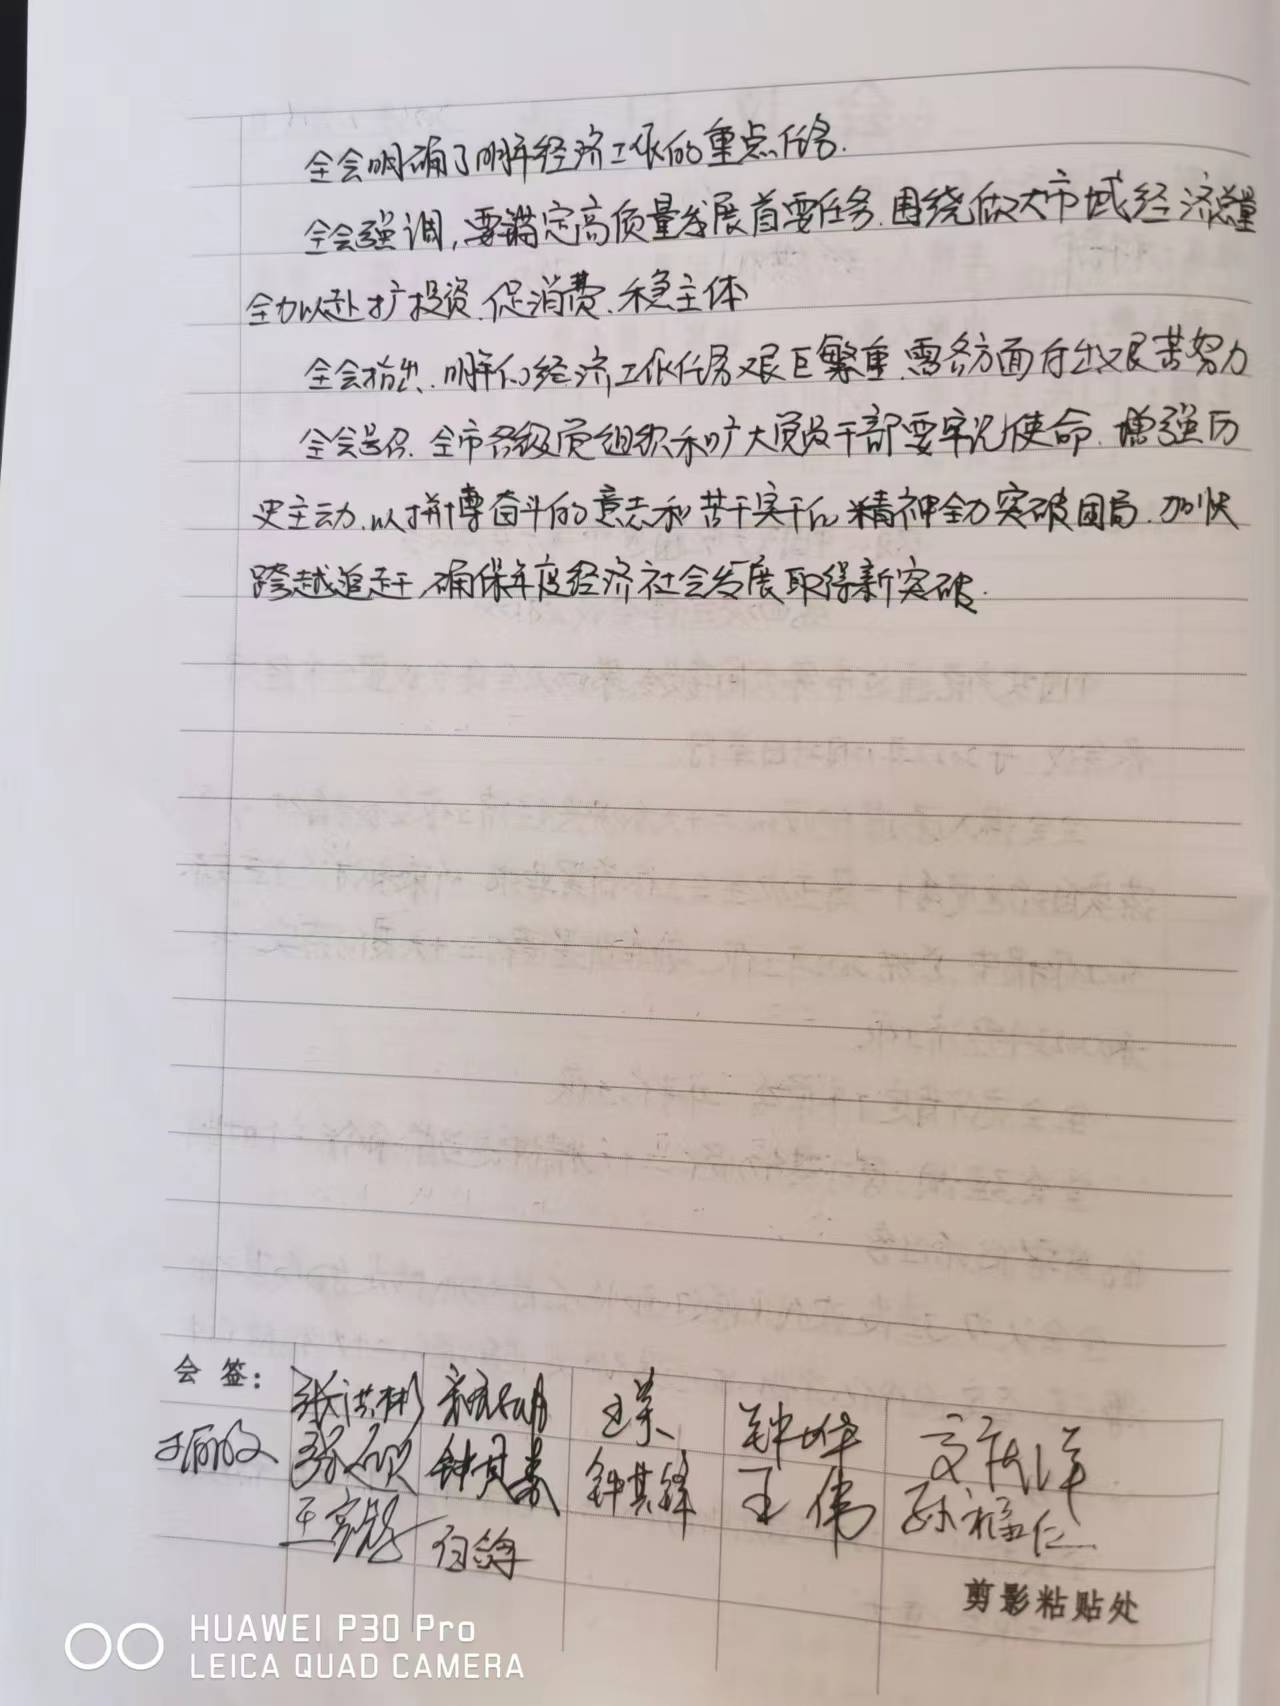 全会明确了明年经济工作的重点任务.
全会强调,要锚定高质量发展首要任务.围绕做大市域经济总量
全力以赴扩投资.促消费.稳主体
全会指出.明年的经济工作任务艰巨繁重.需各方面付出艰苦努力
全会号召.全市各级党组织和广大党员干部要牢记使命.增强历
史主动.以拼搏奋斗的意志和苦干实干的精神全力突破困局.加快
跨越追赶,确保年度经济社会发展取得新突破.
会签:
张洪彬 王荣 钟华
钟其春 钟其锋 王伟 孙福仁
剪影粘贴处
HUAWEI P30 Pro
LEICA QUAD CAMERA